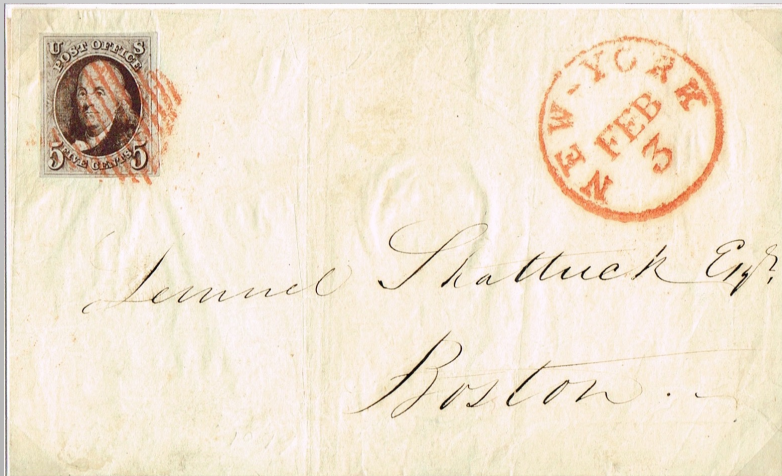 U S
POST OFFICE
5 FIVE CENTS 5
NEW-YORK
FEB
3
Lemuel Shattuck Esqr.
Boston.